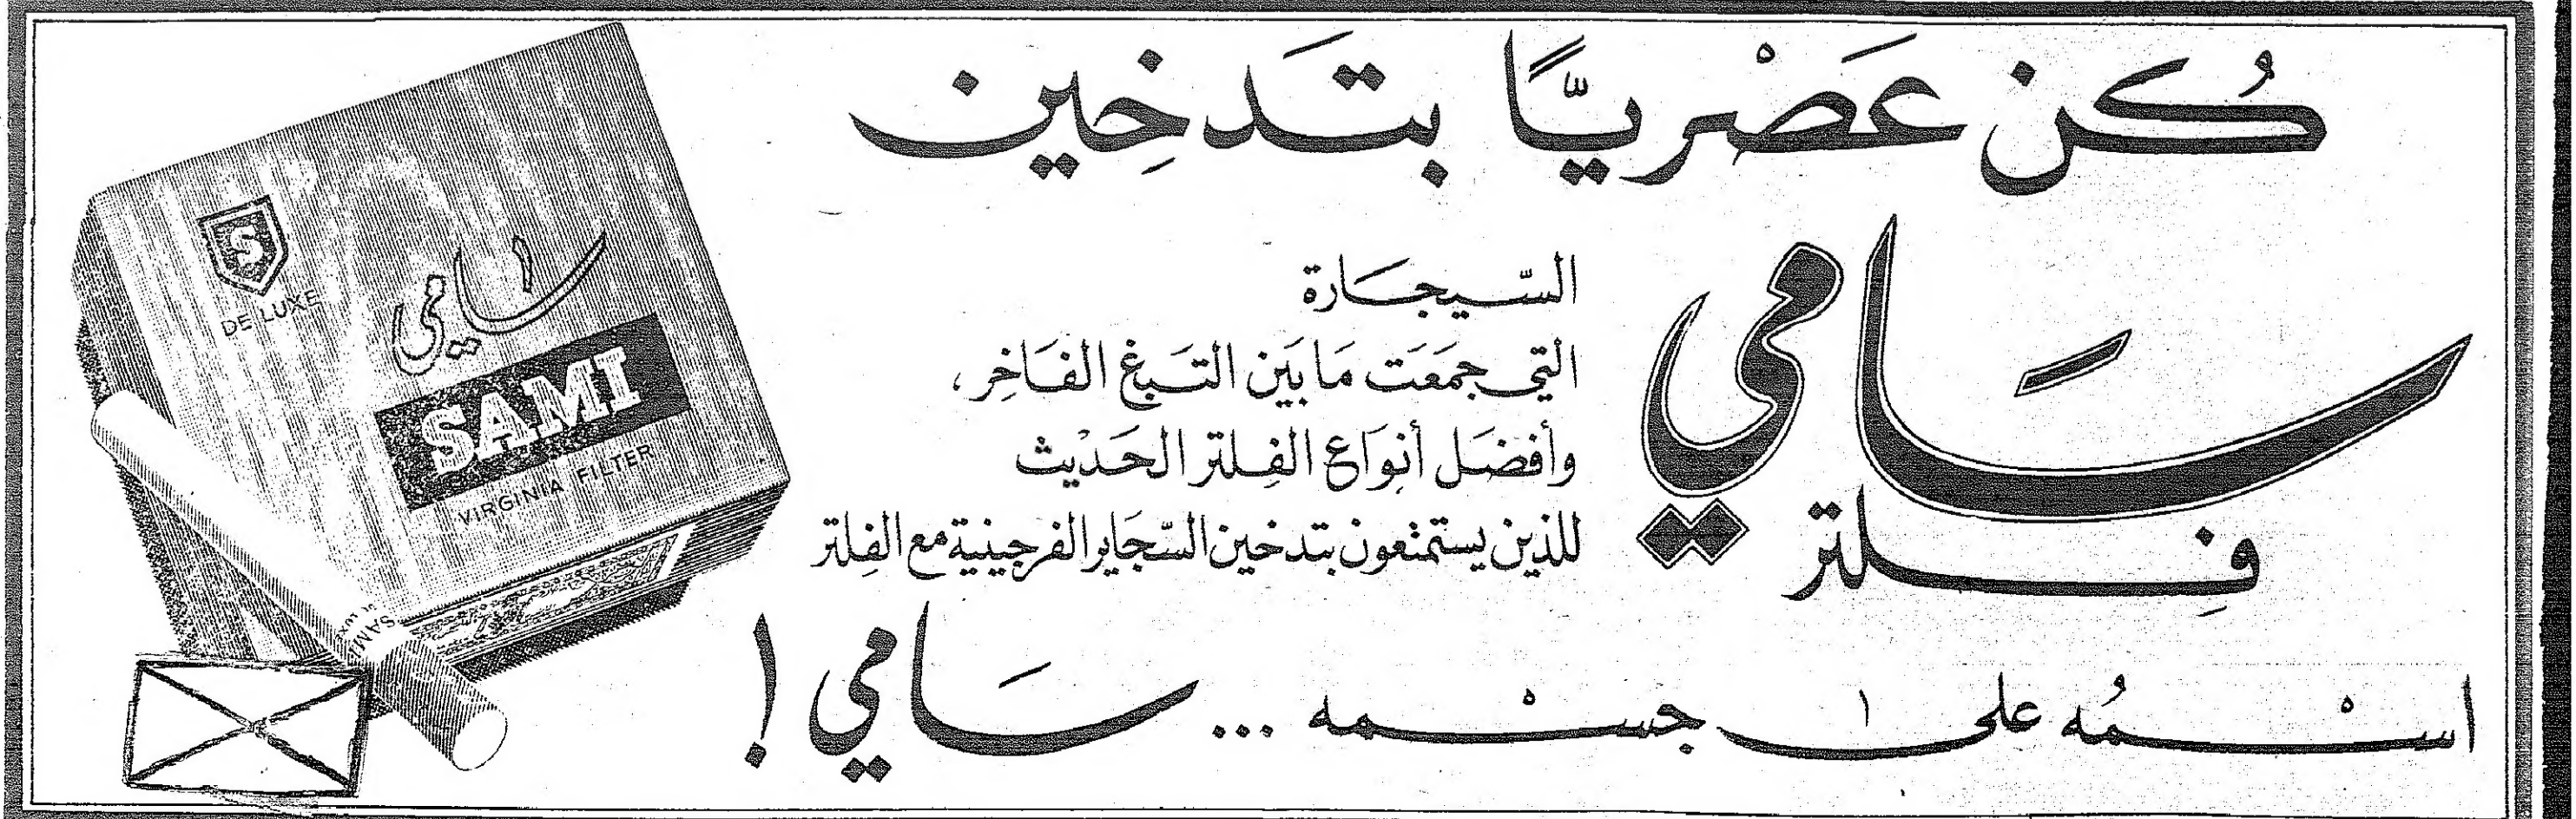 كُن عَصْريّاً بتَدخِين
سَامي
فِلتر
السّيجَارة
التي جمَعَت مَا بَين التَبغ الفَاخِر،
وأفضَل أنوَاع الفِلتر الحَديْث
للذين يستمتعون بتدخين السّجَاير الفرجينية مع الفِلتر
اسْمُه على جسْمه ... سَامي !
S
DE LUXE
سامي
SAMI
VIRGINIA FILTER
SAMI